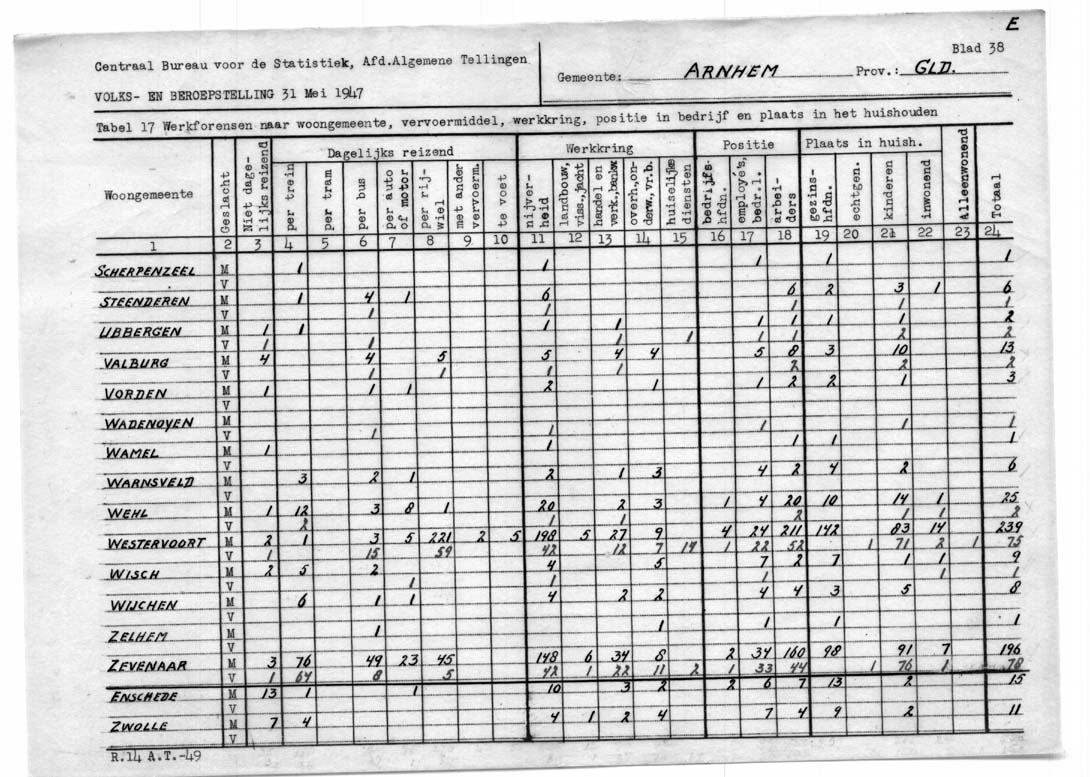 E
Centraal Bureau voor de Statistiek, Afd.Algemene Tellingen
VOLKS- EN BEROEPSTELLING 31 Mei 1947
Gemeente: ARNHEM Prov.: GLD. Blad 38
Tabel 17 Werkforensen naar woongemeente, vervoermiddel, werkkring, positie in bedrijf en plaats in het huishouden
Woongemeente Geslacht Niet dage-lijks reizend Dagelijks reizend Werkkring Positie Plaats in huish. Alleenwonend Totaal
per trein per tram per bus per auto of motor per rij-wiel met ander vervoerm. te voet nijver-heid landbouw, viss.,jacht handel en verk.,bankw. overh.,on-derw.,vr.b. huiselijke diensten bedrijfs-hfdn. employé's, bedr.l. arbei-ders gezins-hfdn. echtgen. kinderen inwonend
1 2 3 4 5 6 7 8 9 10 11 12 13 14 15 16 17 18 19 20 21 22 23 24
SCHERPENZEEL M 1 1 1 1 1
V
STEENDEREN M 1 4 1 6 6 2 3 1 6
V 1 1 1 1 1
UBBERGEN M 1 1 1 1 1 1 1 1 2
V 1 1 1 1 1 1 2 2
VALBURG M 4 4 5 5 4 4 5 8 3 10 13
V 1 1 1 1 2 2 2
VORDEN M 1 1 1 2 1 1 2 2 1 3
V
WADENOYEN M
V 1 1 1 1 1
WAMEL M 1 1 1 1 1
V
WARNSVELD M 3 2 1 2 1 3 4 2 4 2 6
V
WEHL M 1 12 3 8 1 20 2 3 1 4 20 10 14 1 25
V 2 1 1 2 1 1 2
WESTERVOORT M 2 1 3 5 221 2 5 198 5 27 9 4 24 211 142 83 14 239
V 1 15 59 42 12 7 14 1 22 52 1 71 2 1 75
WISCH M 2 5 2 4 5 7 2 7 1 1 9
V 1 1 1 1 1
WIJCHEN M 6 1 1 4 2 2 4 4 3 5 8
V
ZELHEM M 1 1 1 1 1
V
ZEVENAAR M 3 76 49 23 45 148 6 34 8 2 34 160 98 91 7 196
V 1 64 8 5 42 1 22 11 2 1 33 44 1 76 1 78
ENSCHEDE M 13 1 1 10 3 2 2 6 7 13 2 15
V
ZWOLLE M 7 4 4 1 2 4 7 4 9 2 11
V
R.14 A.T.-49